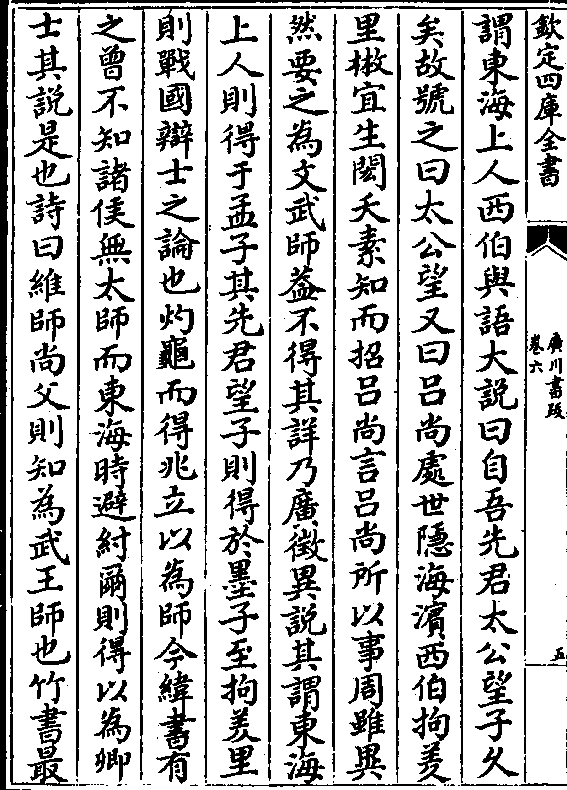 欽定四庫全書
廣川書跋
卷六
五
謂東海上人西伯與語大説曰自吾先君太公望子久
矣故號之曰太公望又曰吕尚處世隱海濱西伯拘羑
里㪚宜生閎夭素知而招吕尚言吕尚所以事周雖異
然要之為文武師葢不得其詳乃廣徴異説其謂東海
上人則得于孟子其先君望子則得於墨子至拘羑里
則戰國辯士之論也灼龜而得兆立以為師今緯書有
之曾不知諸侯無太師而東海時避紂爾則得以為卿
士其説是也詩曰維師尚父則知為武王師也竹書最